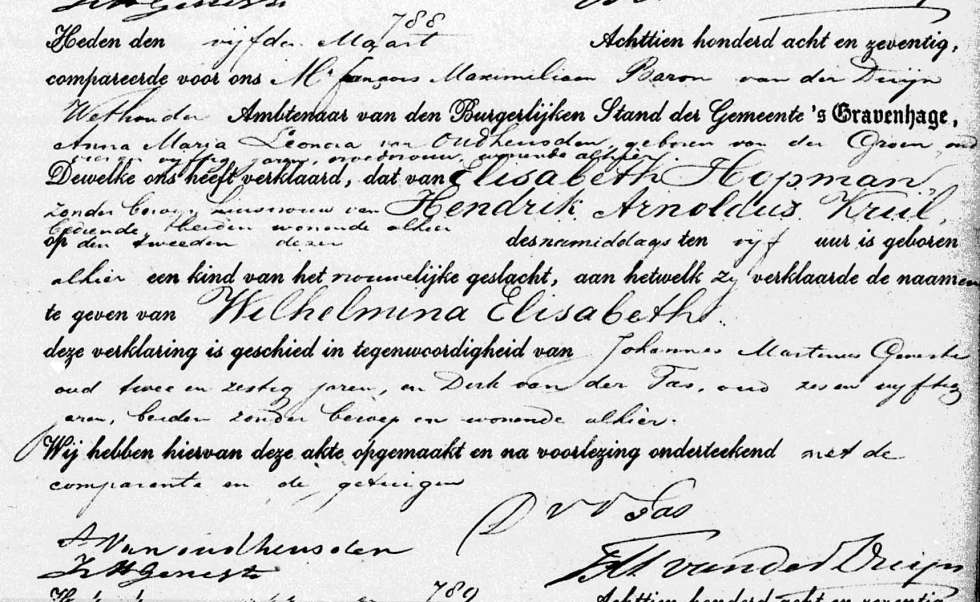 788
Heden den vijfden Maart Achttien honderd acht en zeventig,
compareerde voor ons Mr. François Maximiliaan Baron van der Duijn
Wethouder Ambtenaar van den Burgerlijken Stand der Gemeente 's Gravenhage,
Anna Maria Leonora van Oudheusden, geboren van der Groen, oud
vijftig jaren, vroedvrouw, wonende alhier.
Dewelke ons heeft verklaard, dat van Elisabeth Hopman,
zonder beroep huisvrouw van Hendrik Arnoldus Kruil,
bediende, beiden wonende alhier
op den tweeden dezer des namiddags ten vijf uur is geboren
alhier een kind van het vrouwelijke geslacht, aan hetwelk zij verklaarde de naamen
te geven van Wilhelmina Elisabeth.
deze verklaring is geschied in tegenwoordigheid van Johannes Martinus Geneste
oud twee en zestig jaren, en Dirk van der Tas, oud zes en vijftig
aren, beiden zonder beroep en wonende alhier.
Wij hebben hiervan deze akte opgemaakt en na voorlezing onderteekend met de
comparente en de getuigen
D v d Tas
A Van oudheusden
JM Geneste
FM van der Duijn
789